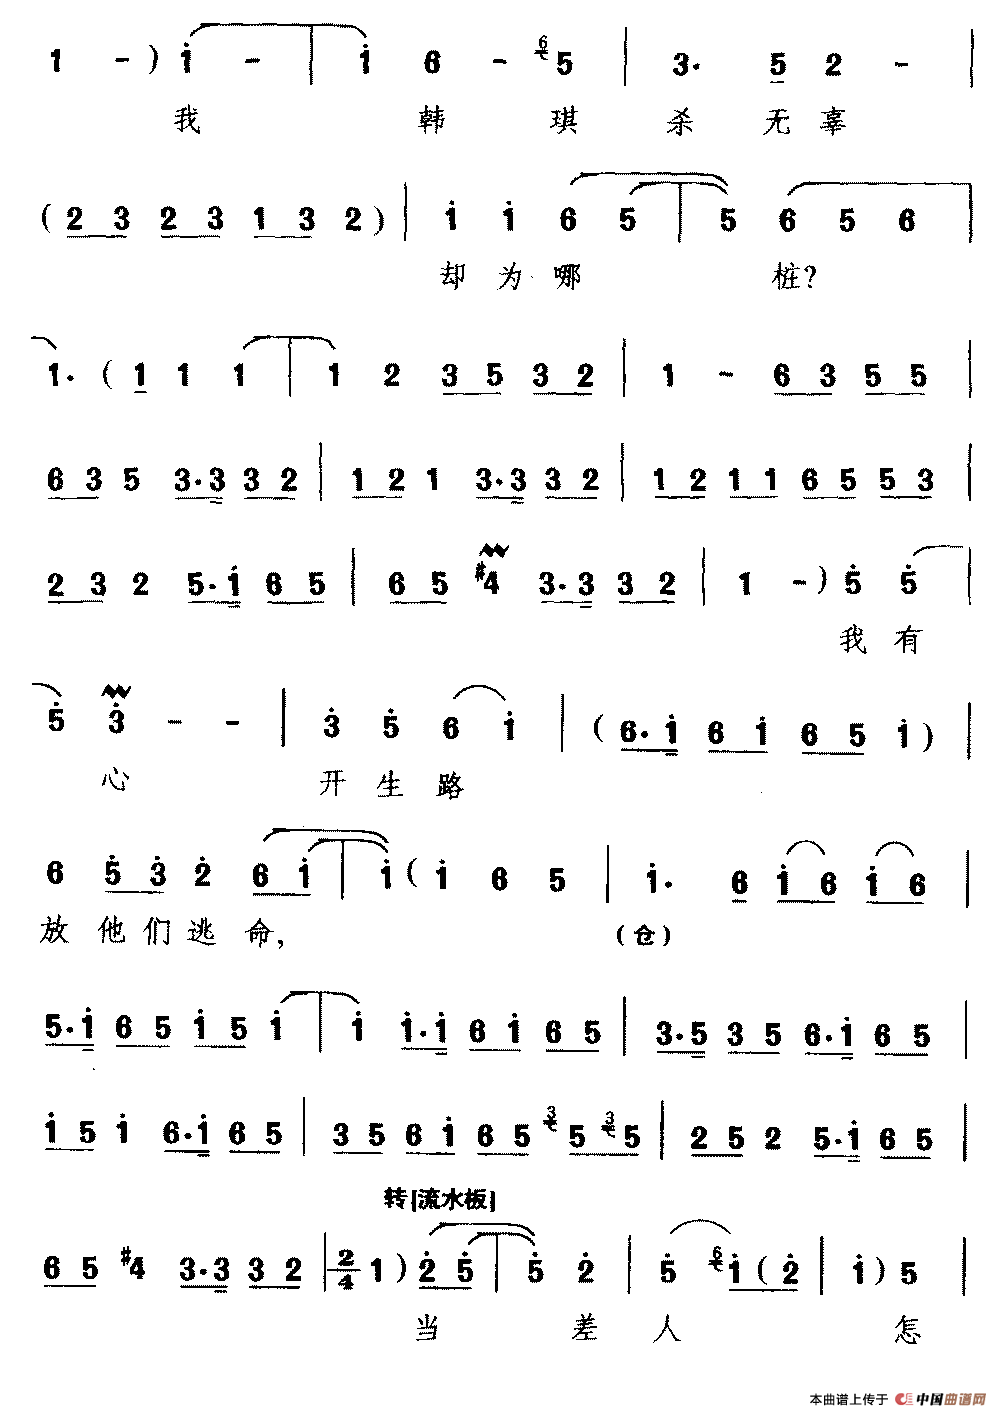 1 - ) 1 - | 1 6 - 6 5 | 3. 5 2 - |
我 韩 琪 杀 无 辜
( 2 3 2 3 1 3 2 ) | 1 1 6 5 | 5 6 5 6 |
却 为 哪 桩?
1. ( 1 1 1 | 1 2 3 5 3 2 | 1 - 6 3 5 5 |
6 3 5 3.3 3 2 | 1 2 1 3.3 3 2 | 1 2 1 1 6 5 5 3 |
2 3 2 5.1 6 5 | 6 5 #4 3.3 3 2 | 1 - ) 5 5 |
我 有
5 3 - - | 3 5 6 1 | ( 6.1 6 1 6 5 1 ) |
心 开 生 路
6 5 3 2 6 1 | 1 ( 1 6 5 | 1. 6 1 6 1 6 |
放 他 们 逃 命, (仓)
5.1 6 5 1 5 1 | 1 1.1 6 1 6 5 | 3.5 3 5 6.1 6 5 |
1 5 1 6.1 6 5 | 3 5 6 1 6 5 3 5 3 5 | 2 5 2 5.1 6 5 |
转[流水板]
6 5 #4 3.3 3 2 | 2/4 1 ) 2 5 | 5 2 | 5 6 1 ( 2 | 1 ) 5 |
当 差 人 怎
本曲谱上传于 中国曲谱网